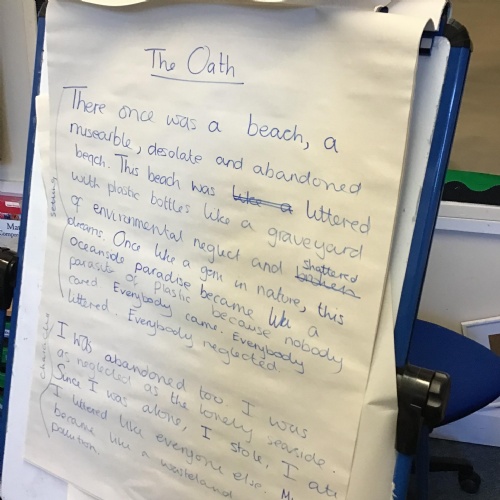 The Oath
There once was a beach, a
misearble, desolate and abandoned
beach. This beach was like a littered
with plastic bottles like a graveyard
of environmental neglect and broken shattered
dreams. Once like a gem in nature, this
oceanside paradise became like a
parasite of plastic because nobody
cared. Everybody came. Everybody
littered. Everybody neglected
I was abandoned too. I was
as neglected as the lonely seaside.
Since I was alone, I stole, I ate
I littered like everyone else.
became like a wasteland
pollution.
setting